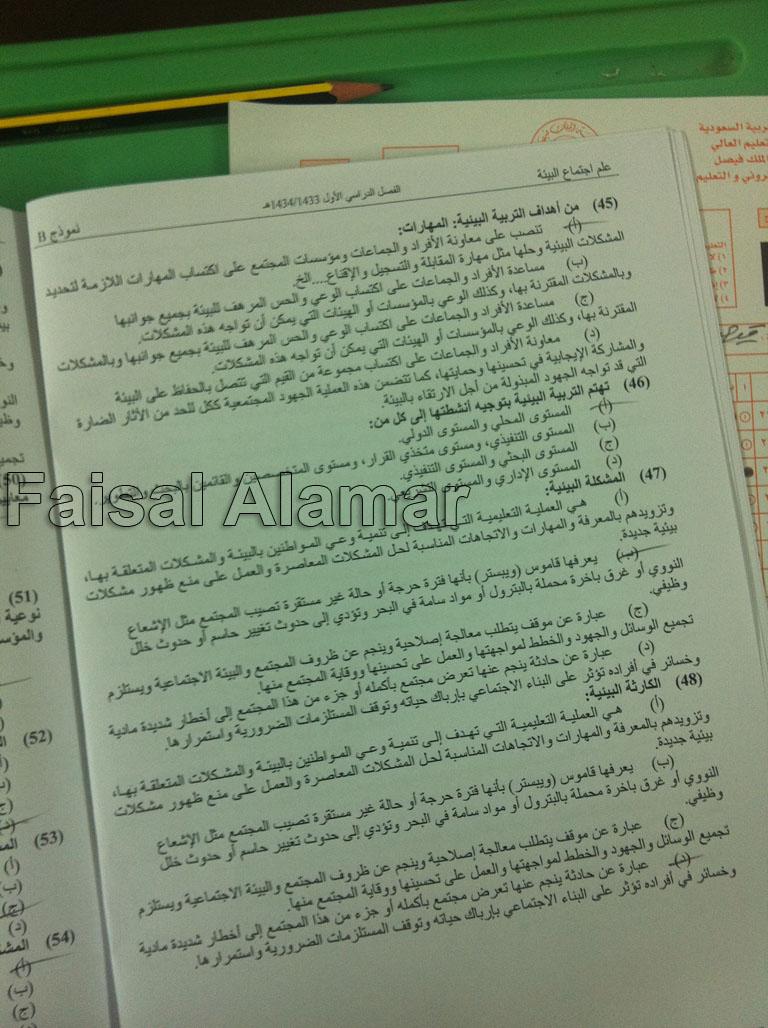 علم اجتماع البيئة
الفصل الدراسي الأول 1434/1433هـ
نموذج B
(45) من أهداف التربية البيئية: المهارات:
(أ) تنصب على معاونة الأفراد والجماعات ومؤسسات المجتمع على اكتساب المهارات اللازمة لتحديد
المشكلات البيئية وحلها مثل مهارة المقابلة والتسجيل والإقناع....الخ.
(ب) مساعدة الأفراد والجماعات على اكتساب الوعي والحس المرهف للبيئة بجميع جوانبها
وبالمشكلات المقترنة بها، وكذلك الوعي بالمؤسسات أو الهيئات التي يمكن أن تواجه هذه المشكلات.
(ج) مساعدة الأفراد والجماعات على اكتساب الوعي والحس المرهف للبيئة بجميع جوانبها وبالمشكلات
المقترنة بها، وكذلك الوعي بالمؤسسات أو الهيئات التي يمكن أن تواجه هذه المشكلات.
(د) معاونة الأفراد والجماعات على اكتساب مجموعة من القيم التي تتصل بالحفاظ على البيئة
والمشاركة الإيجابية في تحسينها وحمايتها، كما تتضمن هذه العملية الجهود المجتمعية ككل للحد من الآثار الضارة
التي قد تواجه الجهود المبذولة من أجل الارتقاء بالبيئة.
(46) تهتم التربية البيئية بتوجيه أنشطتها إلى كل من:
(أ) المستوى المحلي والمستوى الدولي.
(ب) المستوى التنفيذي، ومستوى متخذي القرار، ومستوى المتخصصين والقائمين بالبحث
(ج) المستوى البحثي والمستوى التنفيذي.
(د) المستوى الإداري والمستوى
(47) المشكلة البيئية:
(أ) هي العملية التعليمية التي تهدف إلى تنمية وعي المواطنين بالبيئة والمشكلات المتعلقة بها،
وتزويدهم بالمعرفة والمهارات والاتجاهات المناسبة لحل المشكلات المعاصرة والعمل على منع ظهور مشكلات
بيئية جديدة.
(ب) يعرفها قاموس (ويبستر) بأنها فترة حرجة أو حالة غير مستقرة تصيب المجتمع مثل الإشعاع
النووي أو غرق باخرة محملة بالبترول أو مواد سامة في البحر وتؤدي إلى حدوث تغيير حاسم أو حدوث خلل
وظيفي.
(ج) عبارة عن موقف يتطلب معالجة إصلاحية وينجم عن ظروف المجتمع والبيئة الاجتماعية ويستلزم
تجميع الوسائل والجهود والخطط لمواجهتها والعمل على تحسينها ووقاية المجتمع منها.
(د) عبارة عن حادثة ينجم عنها تعرض مجتمع بأكمله أو جزء من هذا المجتمع إلى أخطار شديدة مادية
وخسائر في أفراده تؤثر على البناء الاجتماعي بإرباك حياته وتوقف المستلزمات الضرورية واستمرارها.
(48) الكارثة البيئية:
(أ) هي العملية التعليمية التي تهدف إلى تنمية وعي المواطنين بالبيئة والمشكلات المتعلقة بها،
وتزويدهم بالمعرفة والمهارات والاتجاهات المناسبة لحل المشكلات المعاصرة والعمل على منع ظهور مشكلات
بيئية جديدة.
(ب) يعرفها قاموس (ويبستر) بأنها فترة حرجة أو حالة غير مستقرة تصيب المجتمع مثل الإشعاع
النووي أو غرق باخرة محملة بالبترول أو مواد سامة في البحر وتؤدي إلى حدوث تغيير حاسم أو حدوث خلل
وظيفي.
(ج) عبارة عن موقف يتطلب معالجة إصلاحية وينجم عن ظروف المجتمع والبيئة الاجتماعية ويستلزم
تجميع الوسائل والجهود والخطط لمواجهتها والعمل على تحسينها ووقاية المجتمع منها.
(د) عبارة عن حادثة ينجم عنها تعرض مجتمع بأكمله أو جزء من هذا المجتمع إلى أخطار شديدة مادية
وخسائر في أفراده تؤثر على البناء الاجتماعي بإرباك حياته وتوقف المستلزمات الضرورية واستمرارها.
(50)
(51)
نوعية
(52)
(53)
(أ)
(ب)
(ج)
(د)
(54)
(أ)
(ب)
(ج)
السعودية
العالي
الملك فيصل
والتعليم
Faisal Alamar